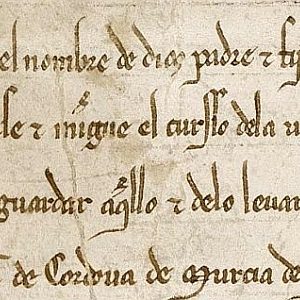 el nombre de dios padre et fi
le et mẽgue el curssso dela u
guardar aq̃llo et delo leuar
de Cordoua de Murcia de